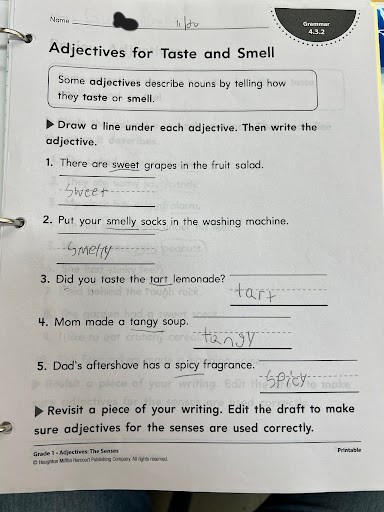 Name 11/20
Grammar
4.3.2
Adjectives for Taste and Smell
Some adjectives describe nouns by telling how
they taste or smell.
▶ Draw a line under each adjective. Then write the
adjective.
1. There are sweet grapes in the fruit salad.
sweet
2. Put your smelly socks in the washing machine.
smelly
3. Did you taste the tart lemonade?
tart
4. Mom made a tangy soup.
tangy
5. Dad's aftershave has a spicy fragrance.
spicy
▶ Revisit a piece of your writing. Edit the draft to make
sure adjectives for the senses are used correctly.
Grade 1 • Adjectives: The Senses
Printable
© Houghton Mifflin Harcourt Publishing Company. All rights reserved.